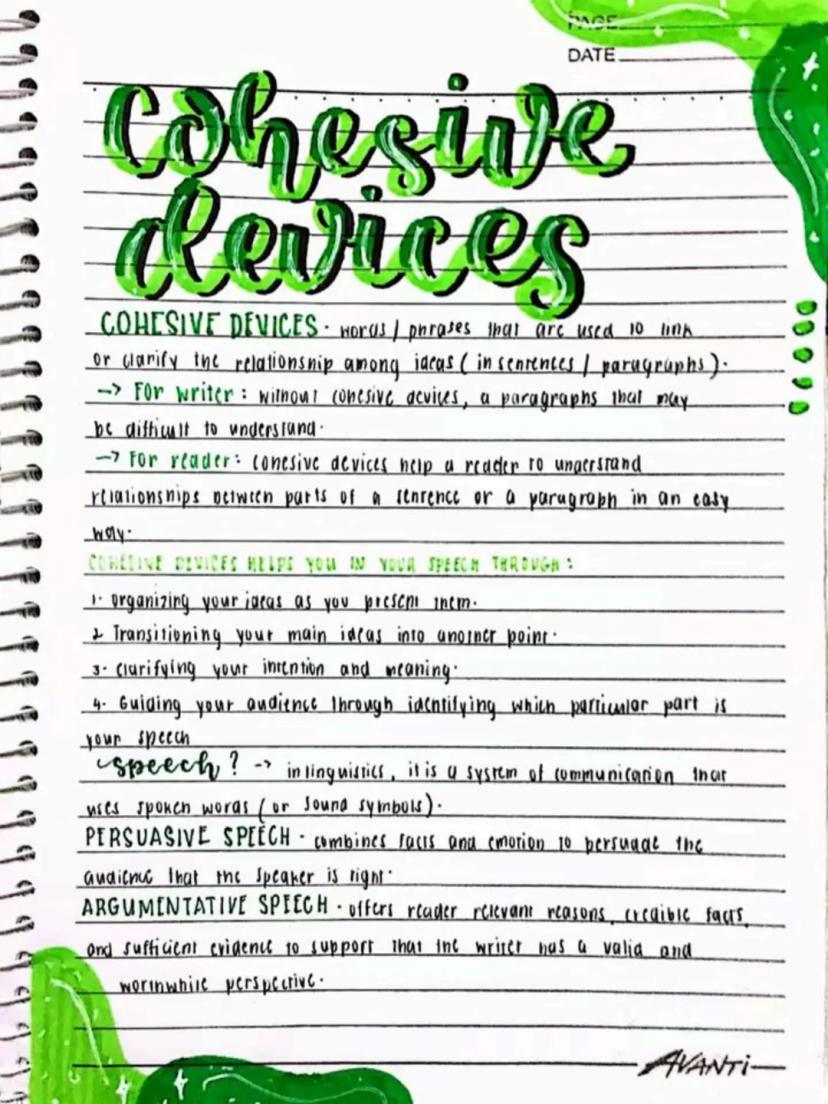 PAGE
DATE
cohesive
devices
COHESIVE DEVICES · words / phrases that are used to link
or clarify the relationship among ideas ( in sentences / paragraphs ).
→ For writer : without cohesive devices, a paragraphs that may
be difficult to understand.
→ For reader : cohesive devices help a reader to understand
relationships between parts of a sentence or a paragraph in an easy
way.
COHESIVE DEVICES HELPS YOU IN YOUR SPEECH THROUGH :
1. organizing your ideas as you present them.
2. Transitioning your main ideas into another point.
3. clarifying your intention and meaning.
4. Guiding your audience through identifying which particular part is
your speech
speech ? → in linguistics, it is a system of communication that
uses spoken words ( or sound symbols ).
PERSUASIVE SPEECH · combines facts and emotion to persuade the
audience that the speaker is right.
ARGUMENTATIVE SPEECH · offers reader relevant reasons, credible facts,
and sufficient evidence to support that the writer has a valid and
worthwhile perspective.
AVANTi